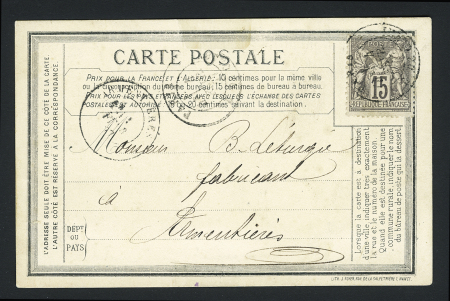 CARTE POSTALE
PRIX POUR LA FRANCE ET L'ALGÉRIE: 10 centimes pour la même ville
ou la circonscription du même bureau; 15 centimes de bureau à bureau.
PRIX POUR LES PAYS ETRANGERS AVEC LESQUELS L'ÉCHANGE DES CARTES
POSTALES EST AUTORISÉ: 15 ou 20 centimes suivant la destination.
POSTE
15
REPUBLIQUE FRANÇAISE
L'ADRESSE SEULE DOIT ÊTRE MISE DE CE CÔTÉ DE LA CARTE.
L'AUTRE CÔTÉ EST RÉSERVÉ A LA CORRESPONDANCE.
Monsieur B. Leburque
fabricant
à
Armentières
DÉPT
OU
PAYS
Lorsque la carte est à destination
d'une ville, indiquer très exactement
la rue et le numéro de la maison.
Quand elle est destinée pour une
commune rurale, indiquer le nom
du bureau de poste qui la dessert.